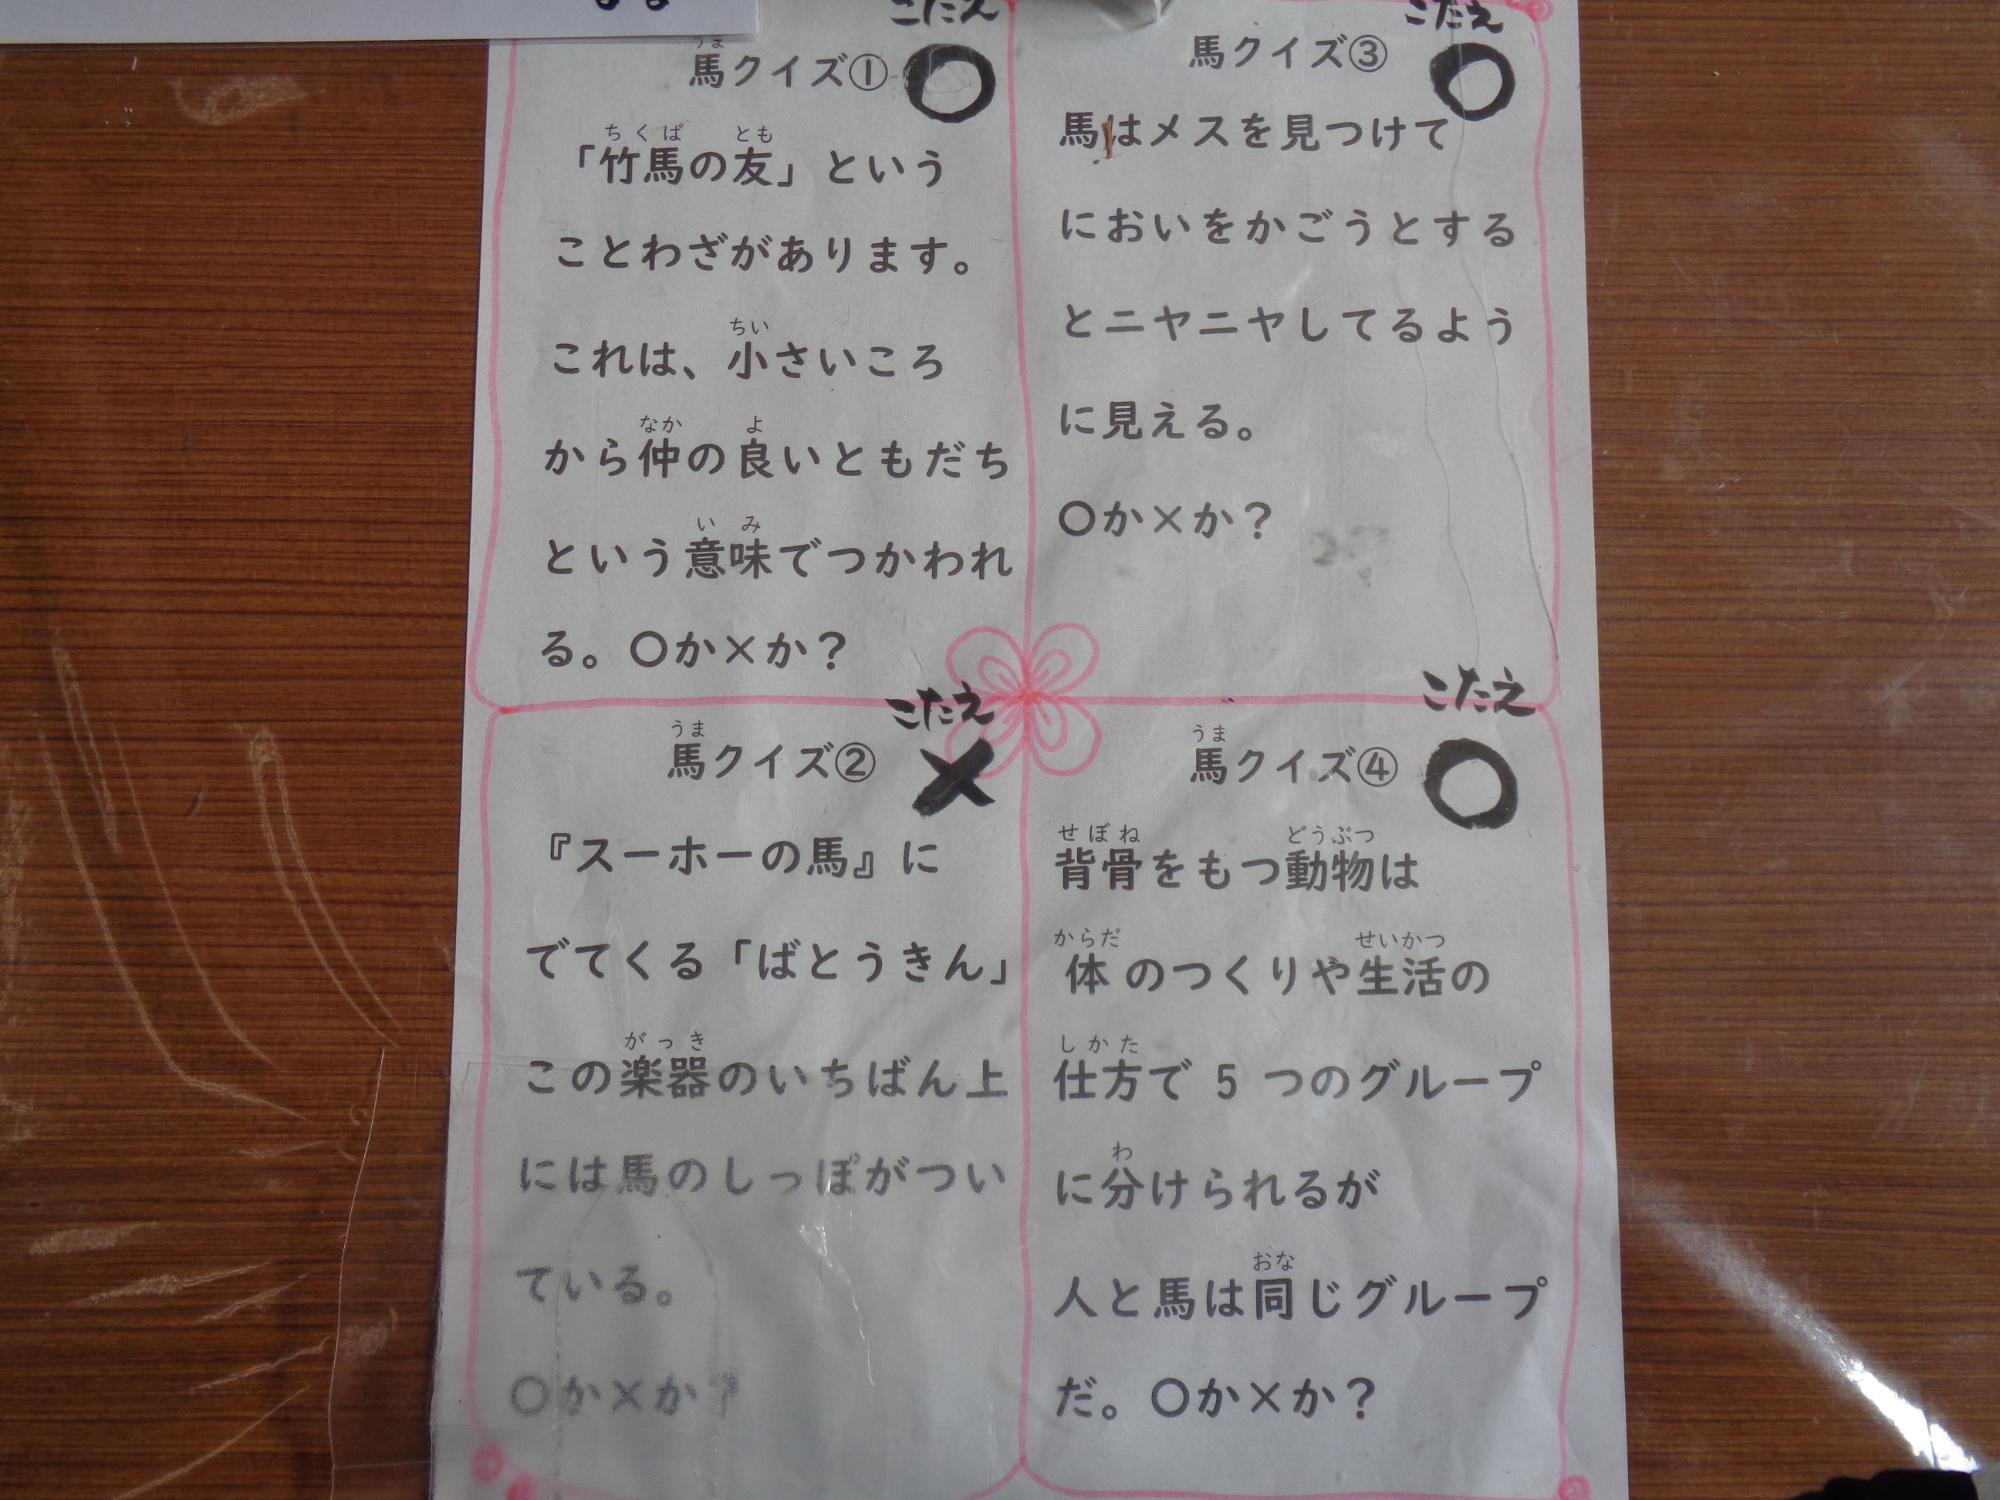 こたえ
馬クイズ① ○
「竹馬の友」という
ことわざがあります。
これは、小さいころ
から仲の良いともだち
という意味でつかわれ
る。○か×か?
こたえ
馬クイズ② ×
『スーホーの馬』に
でてくる「ばとうきん」
この楽器のいちばん上
には馬のしっぽがつい
ている。
○か×か?
こたえ
馬クイズ③ ○
馬はメスを見つけて
においをかごうとする
とニヤニヤしてるよう
に見える。
○か×か?
こたえ
馬クイズ④ ○
背骨をもつ動物は
体のつくりや生活の
仕方で 5 つのグループ
に分けられるが
人と馬は同じグループ
だ。○か×か?